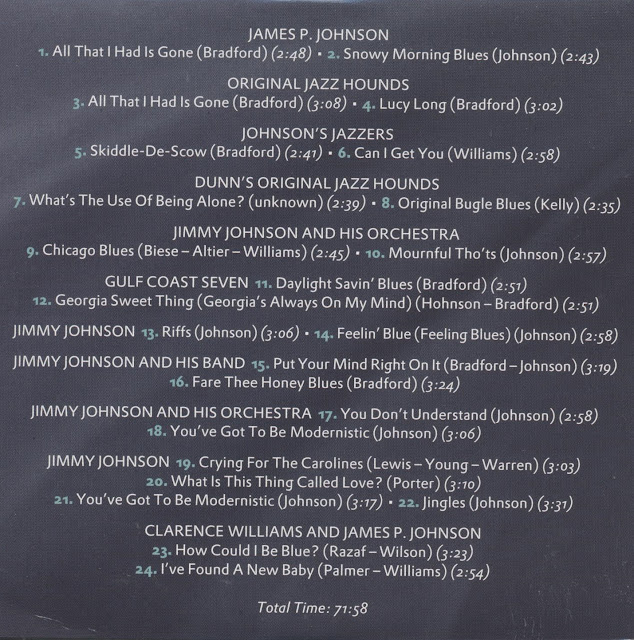 JAMES P. JOHNSON
1. All That I Had Is Gone (Bradford) (2:48) • 2. Snowy Morning Blues (Johnson) (2:43)
ORIGINAL JAZZ HOUNDS
3. All That I Had Is Gone (Bradford) (3:08) • 4. Lucy Long (Bradford) (3:02)
JOHNSON'S JAZZERS
5. Skiddle-De-Scow (Bradford) (2:41) • 6. Can I Get You (Williams) (2:58)
DUNN'S ORIGINAL JAZZ HOUNDS
7. What's The Use Of Being Alone? (unknown) (2:39) • 8. Original Bugle Blues (Kelly) (2:35)
JIMMY JOHNSON AND HIS ORCHESTRA
9. Chicago Blues (Biese – Altier – Williams) (2:45) • 10. Mournful Tho'ts (Johnson) (2:57)
GULF COAST SEVEN 11. Daylight Savin' Blues (Bradford) (2:51)
12. Georgia Sweet Thing (Georgia's Always On My Mind) (Hohnson – Bradford) (2:51)
JIMMY JOHNSON 13. Riffs (Johnson) (3:06) • 14. Feelin' Blue (Feeling Blues) (Johnson) (2:58)
JIMMY JOHNSON AND HIS BAND 15. Put Your Mind Right On It (Bradford – Johnson) (3:19)
16. Fare Thee Honey Blues (Bradford) (3:24)
JIMMY JOHNSON AND HIS ORCHESTRA 17. You Don't Understand (Johnson) (2:58)
18. You've Got To Be Modernistic (Johnson) (3:06)
JIMMY JOHNSON 19. Crying For The Carolines (Lewis – Young – Warren) (3:03)
20. What Is This Thing Called Love? (Porter) (3:10)
21. You've Got To Be Modernistic (Johnson) (3:17) • 22. Jingles (Johnson) (3:31)
CLARENCE WILLIAMS AND JAMES P. JOHNSON
23. How Could I Be Blue? (Razaf – Wilson) (3:23)
24. I've Found A New Baby (Palmer – Williams) (2:54)
Total Time: 71:58